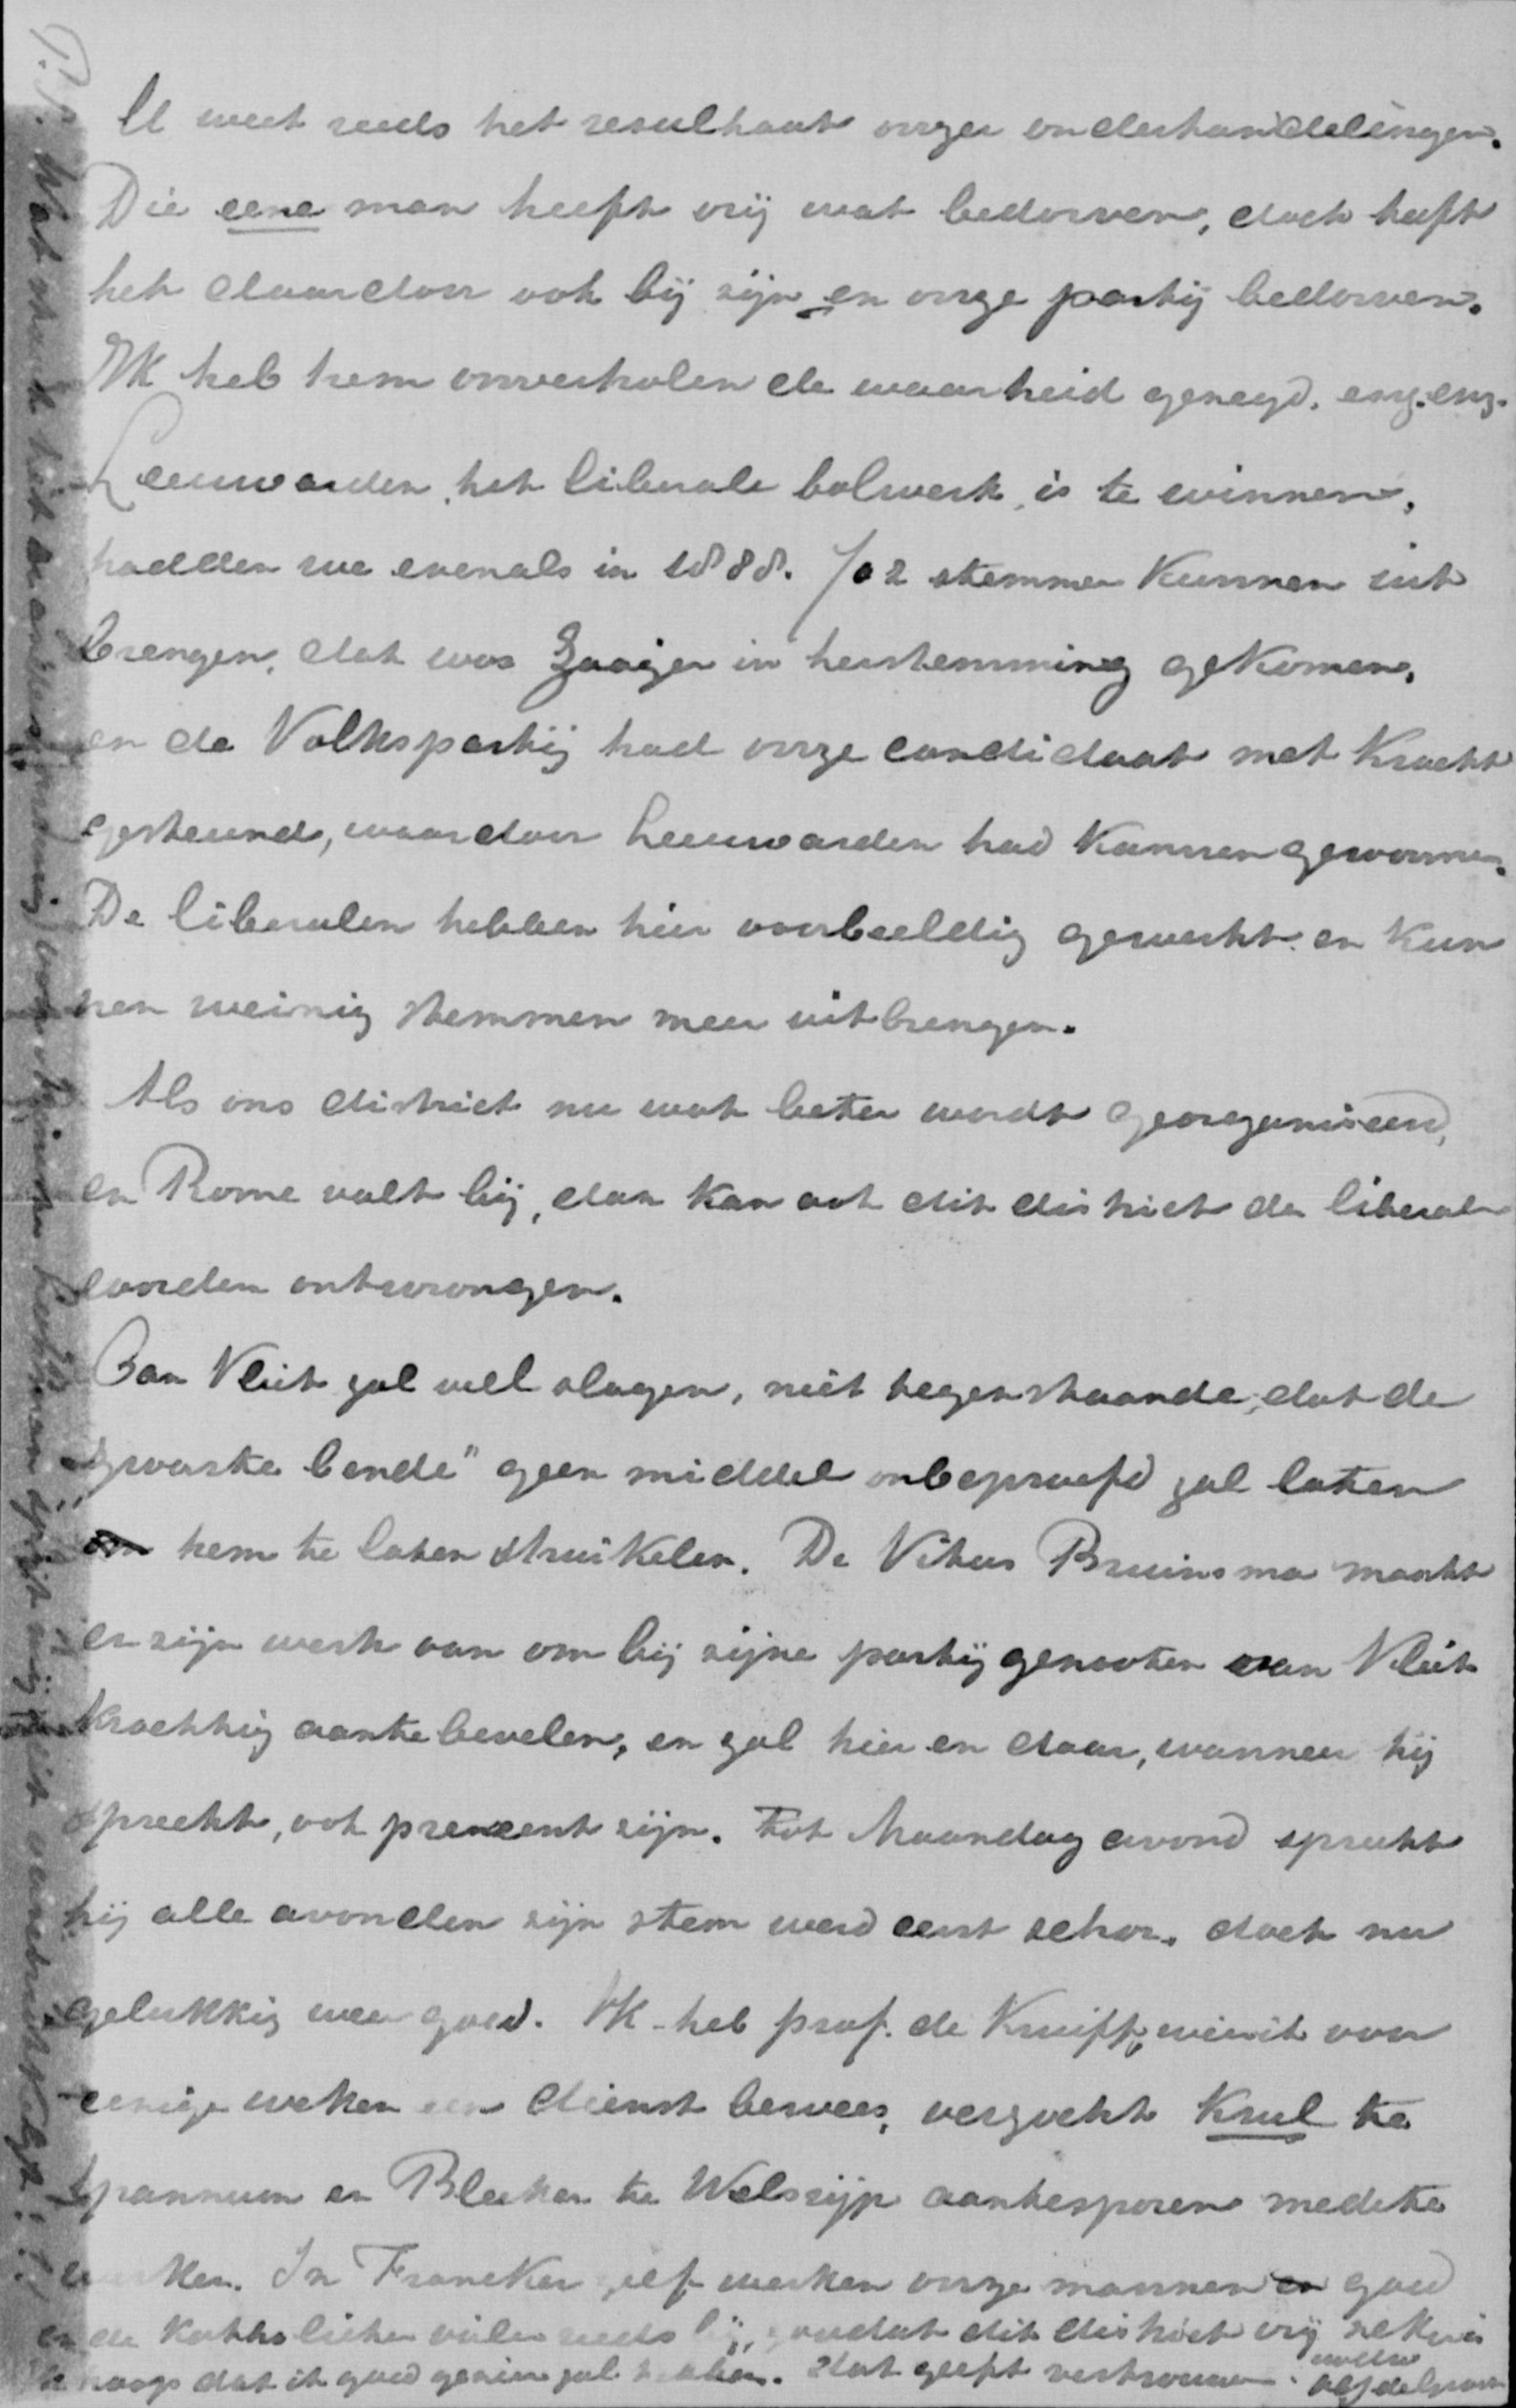 U weet reeds het resultaat onzer onderhandelingen.
Die eene man heeft vrij wat bedorven, doch heeft
het daardoor ook bij zijn en onze partij bedorven.
Ik heb hem onverholen de waarheid gezegd. enz. enz.
Leeuwarden, het liberale bolwerk, is te winnen,
hadden we evenals in 1888. 702 stemmen kunnen uit
brengen, dat was Zaaijer in herstemming gekomen,
en de Volkspartij had onze candidaat met kracht
gesteund, waardoor Leeuwarden had kunnen gewonnen.
De liberalen hebben hier voorbeeldig gewerkt en kun
nen weinig stemmen meer uitbrengen.
Als ons district nu wat beter wordt georganiseerd,
en Rome valt bij, dan kan ook dit district de liberalen
worden ontwrongen.
Van Vliet zal wel slagen, niet tegenstaande, dat de
zwarte bende" geen middel onbeproefd zal laten
om hem te laten struikelen. De Vitus Bruinsma maakt
er zijn werk van om bij zijne partijgenooten van Vliet
krachtig aantebevelen, en zal hier en daar, wanneer hij
spreekt, ook present zijn. Tot Maandag avond spreekt
hij alle avonden zijn stem werd eerst schor. doch nu
gelukkig weer goed. Ik heb prof. de Kruijff, wien ik voor
eenige weken een dienst bewees, verzocht Krul te
Spannum en Bleeker te Welsrijp aantesporen medete
werken. In Franeker zelf werken onze mannen goed
en de Katholieken vielen reeds bij, zoodat dit district vrij zeker is
Ik hoop dat ik goed gezien zal hebben. Dat geeft vertrouwen.